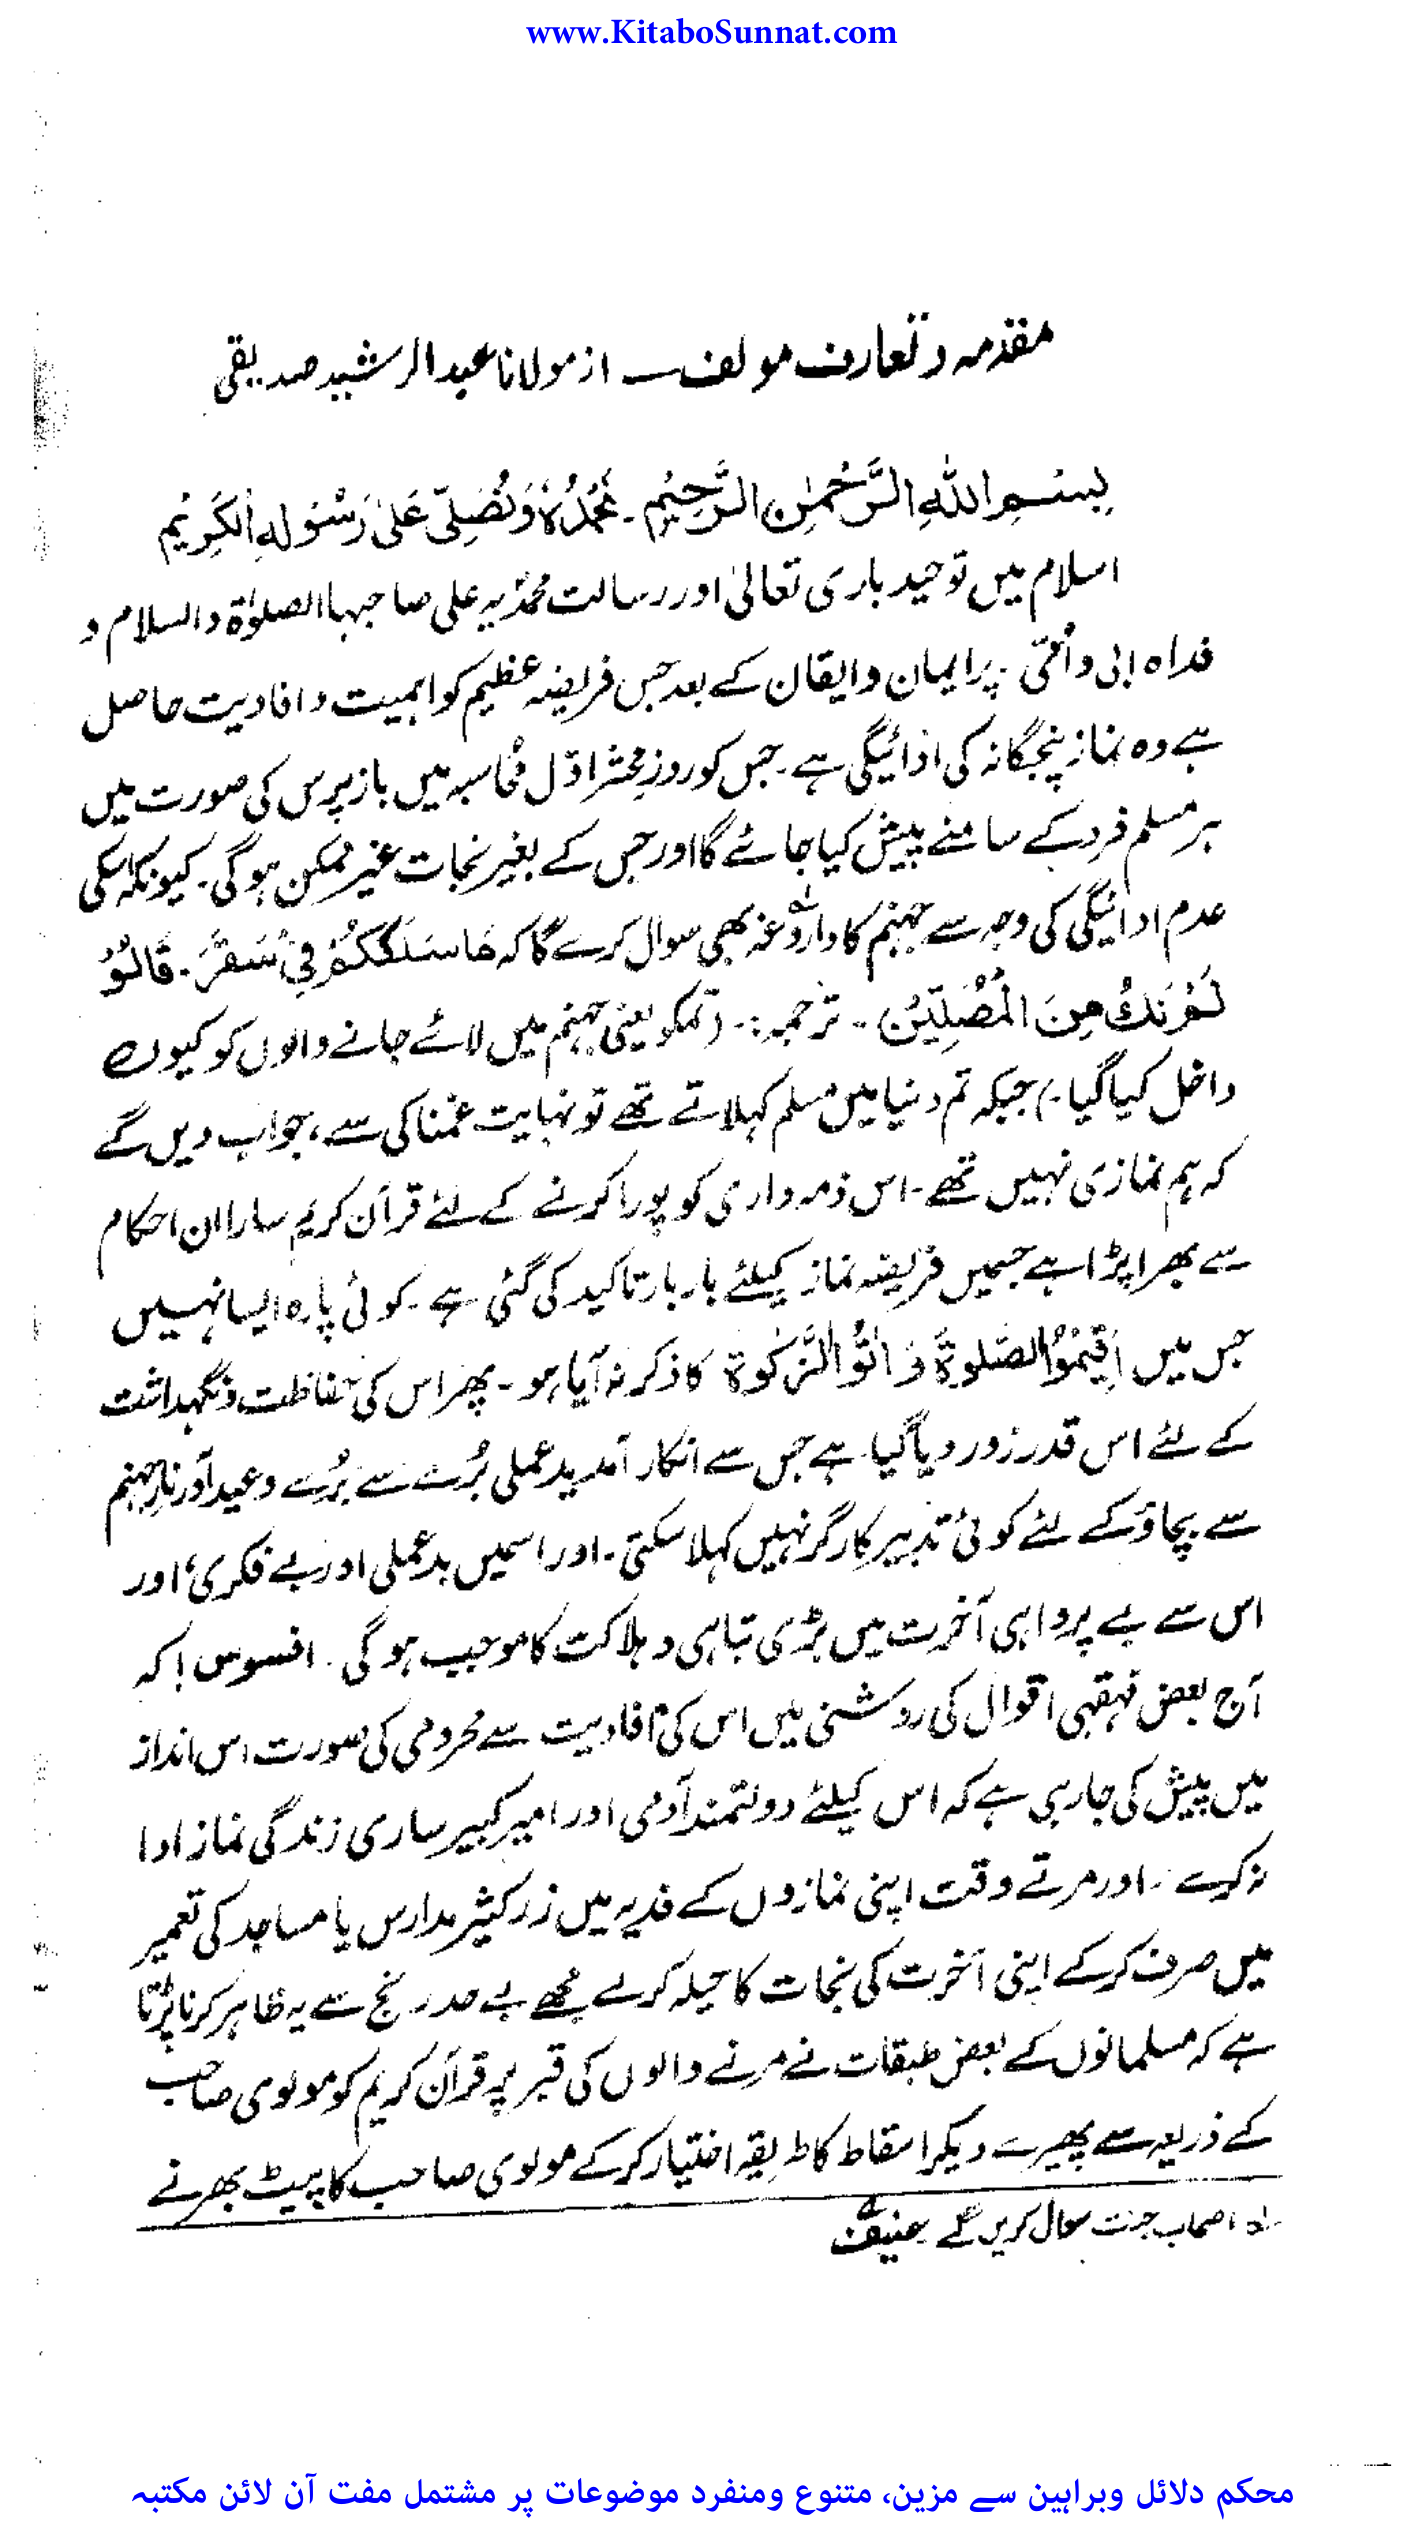 www.KitaboSunnat.com
مقدمہ و تعارف مولف — از مولانا عبدالرشید صدیقی
بِسْمِ اللّٰهِ الرَّحْمٰنِ الرَّحِيْمِ ۔ نَحْمَدُهٗ وَنُصَلِّىْ عَلىٰ رَسُوْلِهِ الْكَرِيْمِ
اسلام میں توحید باری تعالیٰ اور رسالت محمدؐیہ علی صاحبہا الصلوٰۃ والسلام و
فداہ ابی و اُمّی ۔ پر ایمان و ایقان کے بعد جس فریضہ عظیم کو اہمیت و افادیت حاصل
ہے وہ نماز پنجگانہ کی ادائیگی ہے ۔ جس کو روزِ محشر اوّل مُحاسبہ میں بازپرس کی صورت میں
ہر مسلم فرد کے سامنے پیش کیا جائے گا اور جس کے بغیر نجات غیر ممکن ہوگی ۔ کیونکہ اسکی
عدم ادائیگی کی وجہ سے جہنم کا داروغہ بھی سوال کرے گا کہ مَا سَلَكَكُمْ فِىْ سَقَرَ ۔ قَالُوْ
لَمْ نَكُ مِنَ الْمُصَلِّيْن ۔ ترجمہ :۔ (تمکو یعنی جہنم میں لائے جانے والوں کو کیوں
داخل کیا گیا ۔) جبکہ تم دنیا میں مسلم کہلاتے تھے تو نہایت غمناکی سے، جواب دیں گے
کہ ہم نمازی نہیں تھے ۔ اس ذمہ داری کو پورا کرنے کے لئے قرآن کریم سارا ان احکام
سے بھرا پڑا ہے جسمیں فریضہ نماز کیلئے بار بار تاکید کی گئی ہے ۔ کوئی پارہ ایسا نہیں
جس میں اَقِيْمُوا الصَّلوٰةَ وَ اٰتُوا الزَّكٰوة کا ذکر نہ آیا ہو ۔ پھر اس کی حفاظت و نگہداشت
کے لئے اس قدر زور دیا گیا ہے جس سے انکار اور بدعملی بُرے سے بُرے وعید اور نارِ جہنم
سے بچاؤ کے لئے کوئی تدبیر کارگر نہیں کہلا سکتی ۔ اور اسمیں بدعملی اور بے فکری، اور
اس سے بے پرواہی آخرت میں بڑی تباہی و ہلاکت کا موجب ہوگی ۔ افسوس! کہ
آج بعض فہقہی اقوال کی روشنی میں اس کی افادیت سے محرومی کی صورت اس انداز
میں پیش کی جارہی ہے کہ اس کیلئے دولتمند آدمی اور امیر کبیر ساری زندگی نماز ادا
نہ کرے ۔ اور مرتے وقت اپنی نمازوں کے فدیہ میں زر کثیر مدارس یا مساجد کی تعمیر
میں صرف کرکے اپنی آخرت کی نجات کا حیلہ کرلے مجھے بے حد رنج سے یہ ظاہر کرنا پڑتا
ہے کہ مسلمانوں کے بعض طبقات نے مرنے والوں کی قبر پر قرآن کریم کو مولوی صاحب
کے ذریعہ سے پھیرے دیکر اسقاط کا طریقہ اختیار کرکے مولوی صاحب کا پیٹ بھرنے
لہ اصحاب جنت سوال کریں گے حنیف
محکم دلائل وبراہین سے مزین، متنوع ومنفرد موضوعات پر مشتمل مفت آن لائن مکتبہ